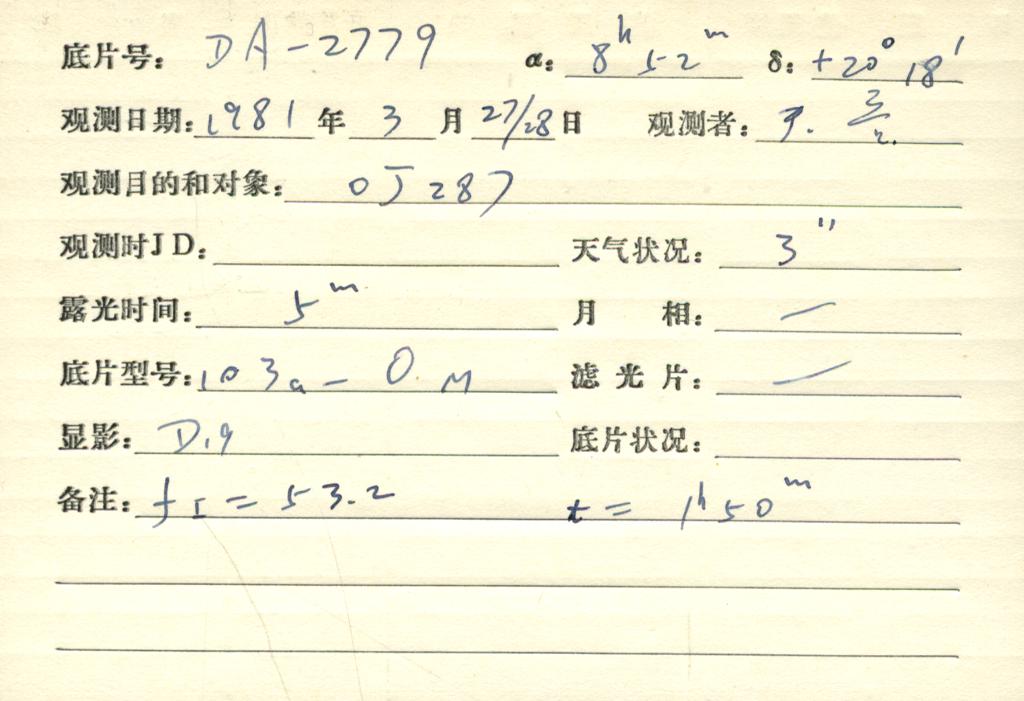 底片号: DA-2779 α: 8h 52m δ: +20° 18′
观测日期: 1981 年 3 月 27/28 日 观测者:
观测目的和对象: OJ 287
观测时JD: 天气状况: 3″
露光时间: 5m 月 相: —
底片型号: 103a-O M 滤光片: —
显影: D.19 底片状况:
备注: fI = 53.2 t = 1h 50m